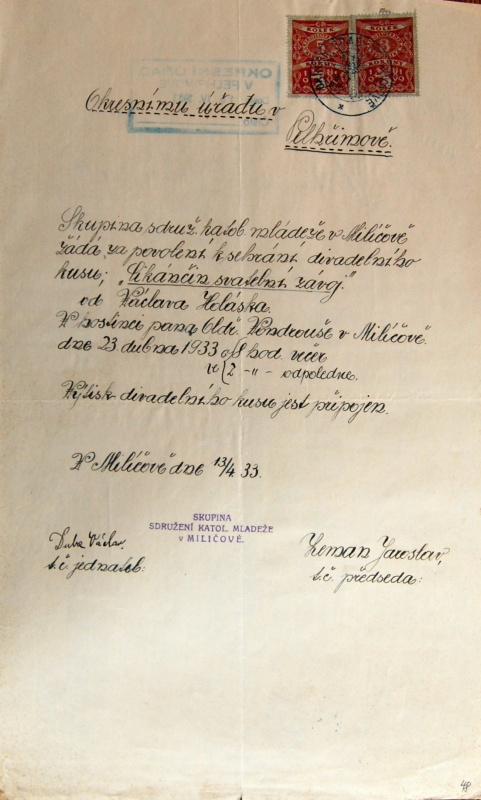 KOLEK KOLEK
5 3
KORUNY
Okresnímu úřadu v
Pelhřimově.
Skupina sdruž. katol. mládeže v Milíčově
žádá za povolení k sehrání divadelního
kusu: „Cikánčin svatební závoj."
od Václava Holáska.
V hostinci pana Old. Vondrouše v Milíčově.
dne 23 dubna 1933 o 8 hod. večer
2 -"- odpoledne.
Výtisk divadelního kusu jest připojen.
V Milíčově dne 13/4 33.
SKUPINA
SDRUŽENÍ KATOL. MLADEŽE
v MILIČOVĚ.
Duba Václav.
t.č. jednatel:
Zeman Jaroslav,
t.č. předseda:
48